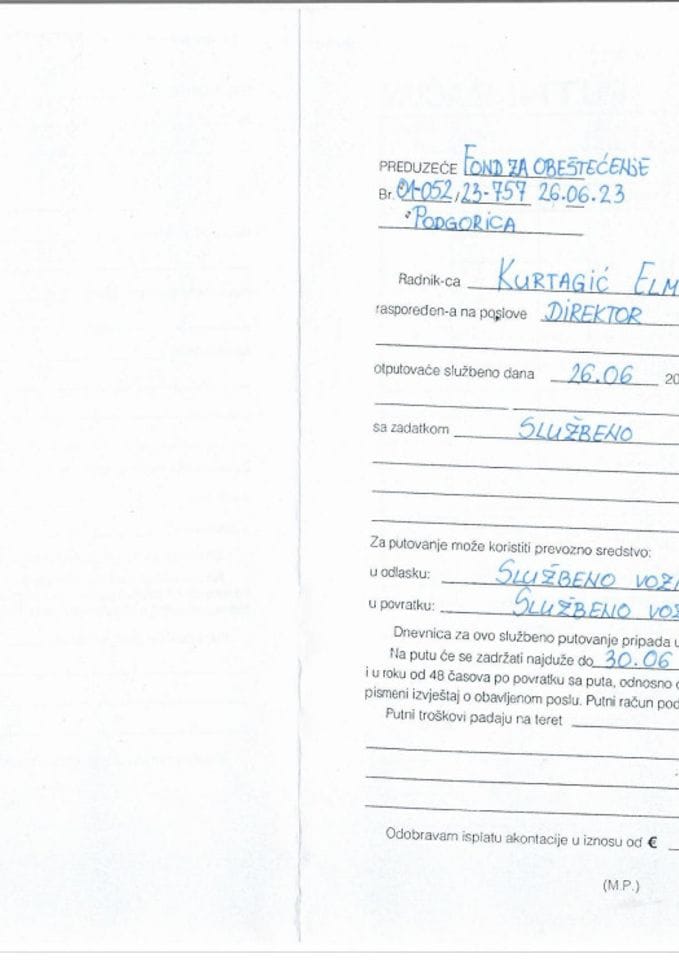 PREDUZEĆE FOND ZA OBEŠTEĆENJE
Br. 01-052,23-757 26.06.23
PODGORICA
Radnik-ca KURTAGIĆ ELM
raspoređen-a na poslove DIREKTOR
otputovaće službeno dana 26.06 20
sa zadatkom SLUŽBENO
Za putovanje može koristiti prevozno sredstvo:
u odlasku: SLUŽBENO VOZI
u povratku: SLUŽBENO VOZ
Dnevnica za ovo službeno putovanje pripada u
Na putu će se zadržati najduže do 30.06
i u roku od 48 časova po povratku sa puta, odnosno
pismeni izvještaj o obavljenom poslu. Putni račun pod
Putni troškovi padaju na teret
Odobravam isplatu akontacije u iznosu od €
(M.P.)